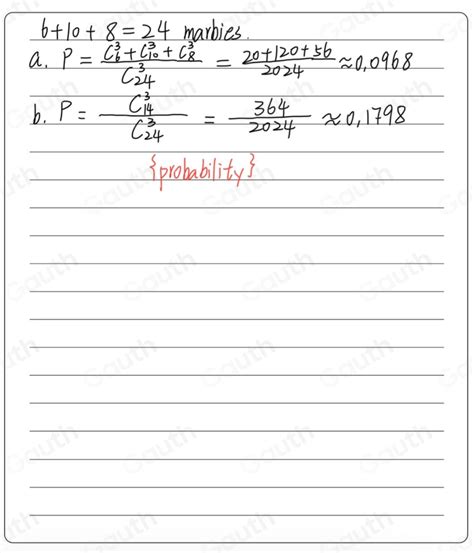 6+10+8=24 marbies.
a. P = (C_6^3 + C_10^3 + C_8^3) / C_24^3 = (20+120+56) / 2024 ≈ 0,0968
b. P = C_14^3 / C_24^3 = 364 / 2024 ≈ 0,1798
{probability}
Gauth